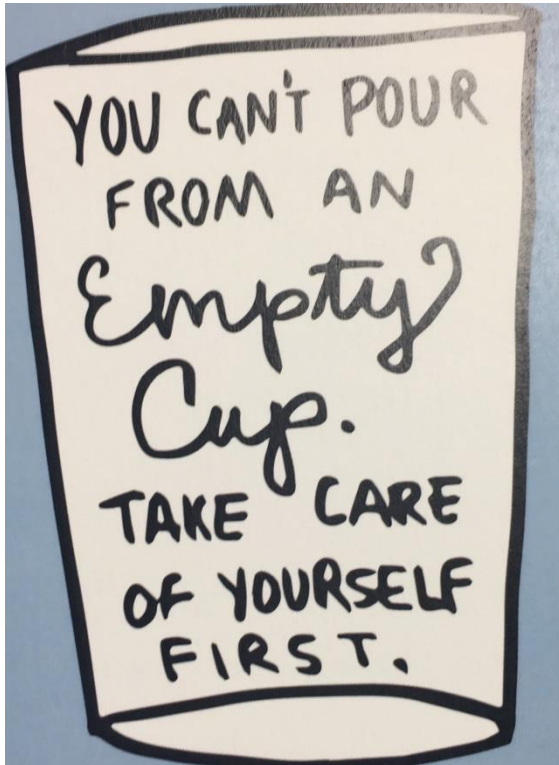 YOU CAN'T POUR
FROM AN
Empty
Cup.
TAKE CARE
OF YOURSELF
FIRST.